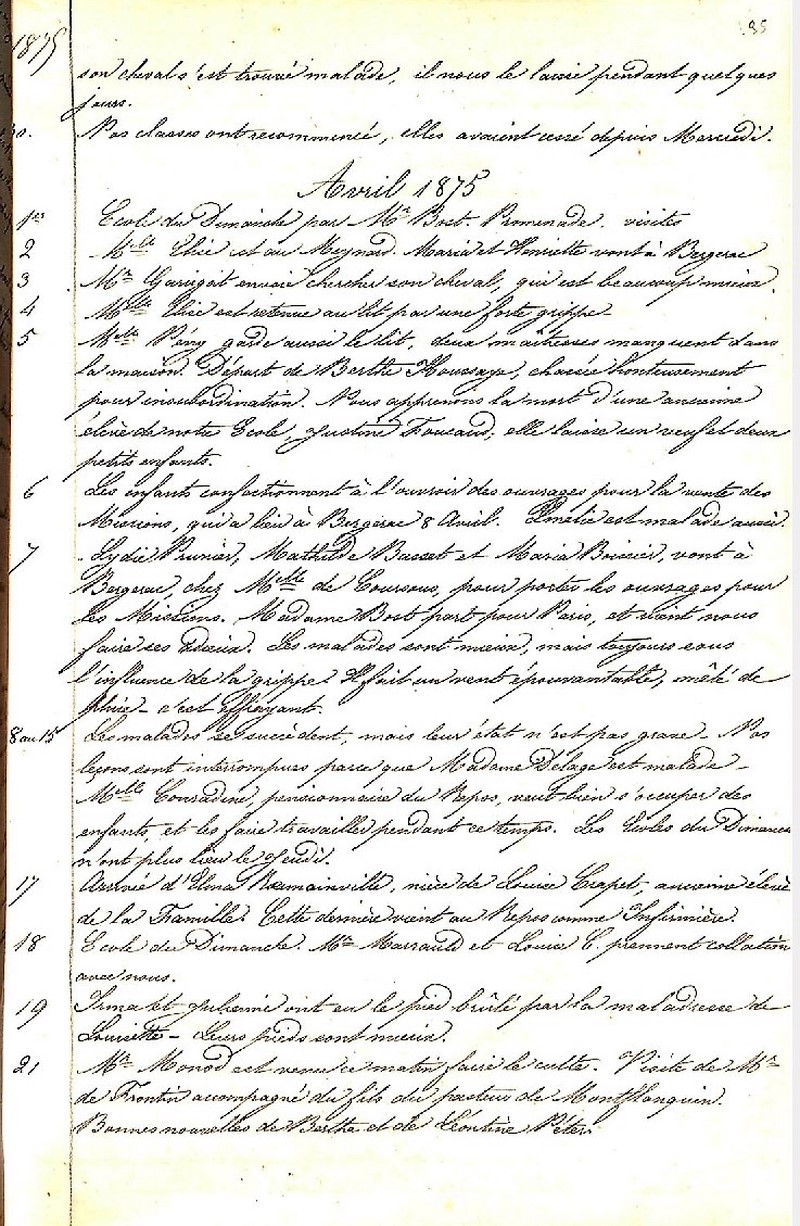 1875
95
son cheval s'est trouvé malade, il nous le laisse pendant quelques
jours.
30. Nos classes ont recommencé, elles avaient cessé depuis Mercredi.
Avril 1875
1er Ecole du Dimanche par Mr Bost. Promenade. visites
2 Melle Elise est au Meynard. Maria et Henriette vont à Bergerac
3 Mr Garrigat envoie chercher son cheval, qui est beaucoup mieux.
4 Melle Elise est retenue au lit par une forte grippe.
5 Melle Péry garde aussi le lit, deux maîtresses manquent dans
la maison. Départ de Berthe Houssaye, chassée honteusement
pour insubordination. Nous apprenons la mort d'une ancienne
élève de notre Ecole, Justine Foucaud, elle laisse un veuf et deux
petits enfants.
6 Les enfants confectionnent à l'ouvroir des ouvrages pour la vente des
Missions, qui a lieu à Bergerac 8 Avril. Amélie est malade aussi.
7 Lydie Prunier, Mathilde Basset et Maria Boissier, vont à
Bergerac, chez Melle de Coursous, pour porter les ouvrages pour
les Missions. Madame Bost part pour Paris, et vient nous
faire ses adieux. Les malades sont mieux, mais toujours sous
l'influence de la grippe. Il fait un vent épouvantable, mêlé de
pluie - c'est effrayant.
8 au 15 Les malades se succèdent, mais leur état n'est pas grave - Nos
leçons sont interrompues parce que Madame Delage est malade -
Melle Conradine, pensionnaire du Repos, veut bien s'occuper des
enfants, et les faire travailler pendant ce temps. Les Ecoles du Dimanche
n'ont plus lieu le Jeudi.
17 Arrivée d'Elma Romainville, nièce de Louise Crapet, ancienne élève
de la Famille. Cette dernière vient au Repos comme Infirmière.
18 Ecole du Dimanche. Mr Marrauld et Louise C. prennent collation
avec nous.
19 Irma et Julienne ont eu le pied brûlé par la maladresse de
Louisette - Leurs pieds sont mieux.
21 Mr Monod est venu ce matin faire le culte. Visite de Mr
de Frontin accompagné du fils du pasteur de Montflanquin.
Bonnes nouvelles de Berthe et de Léontine Péters.